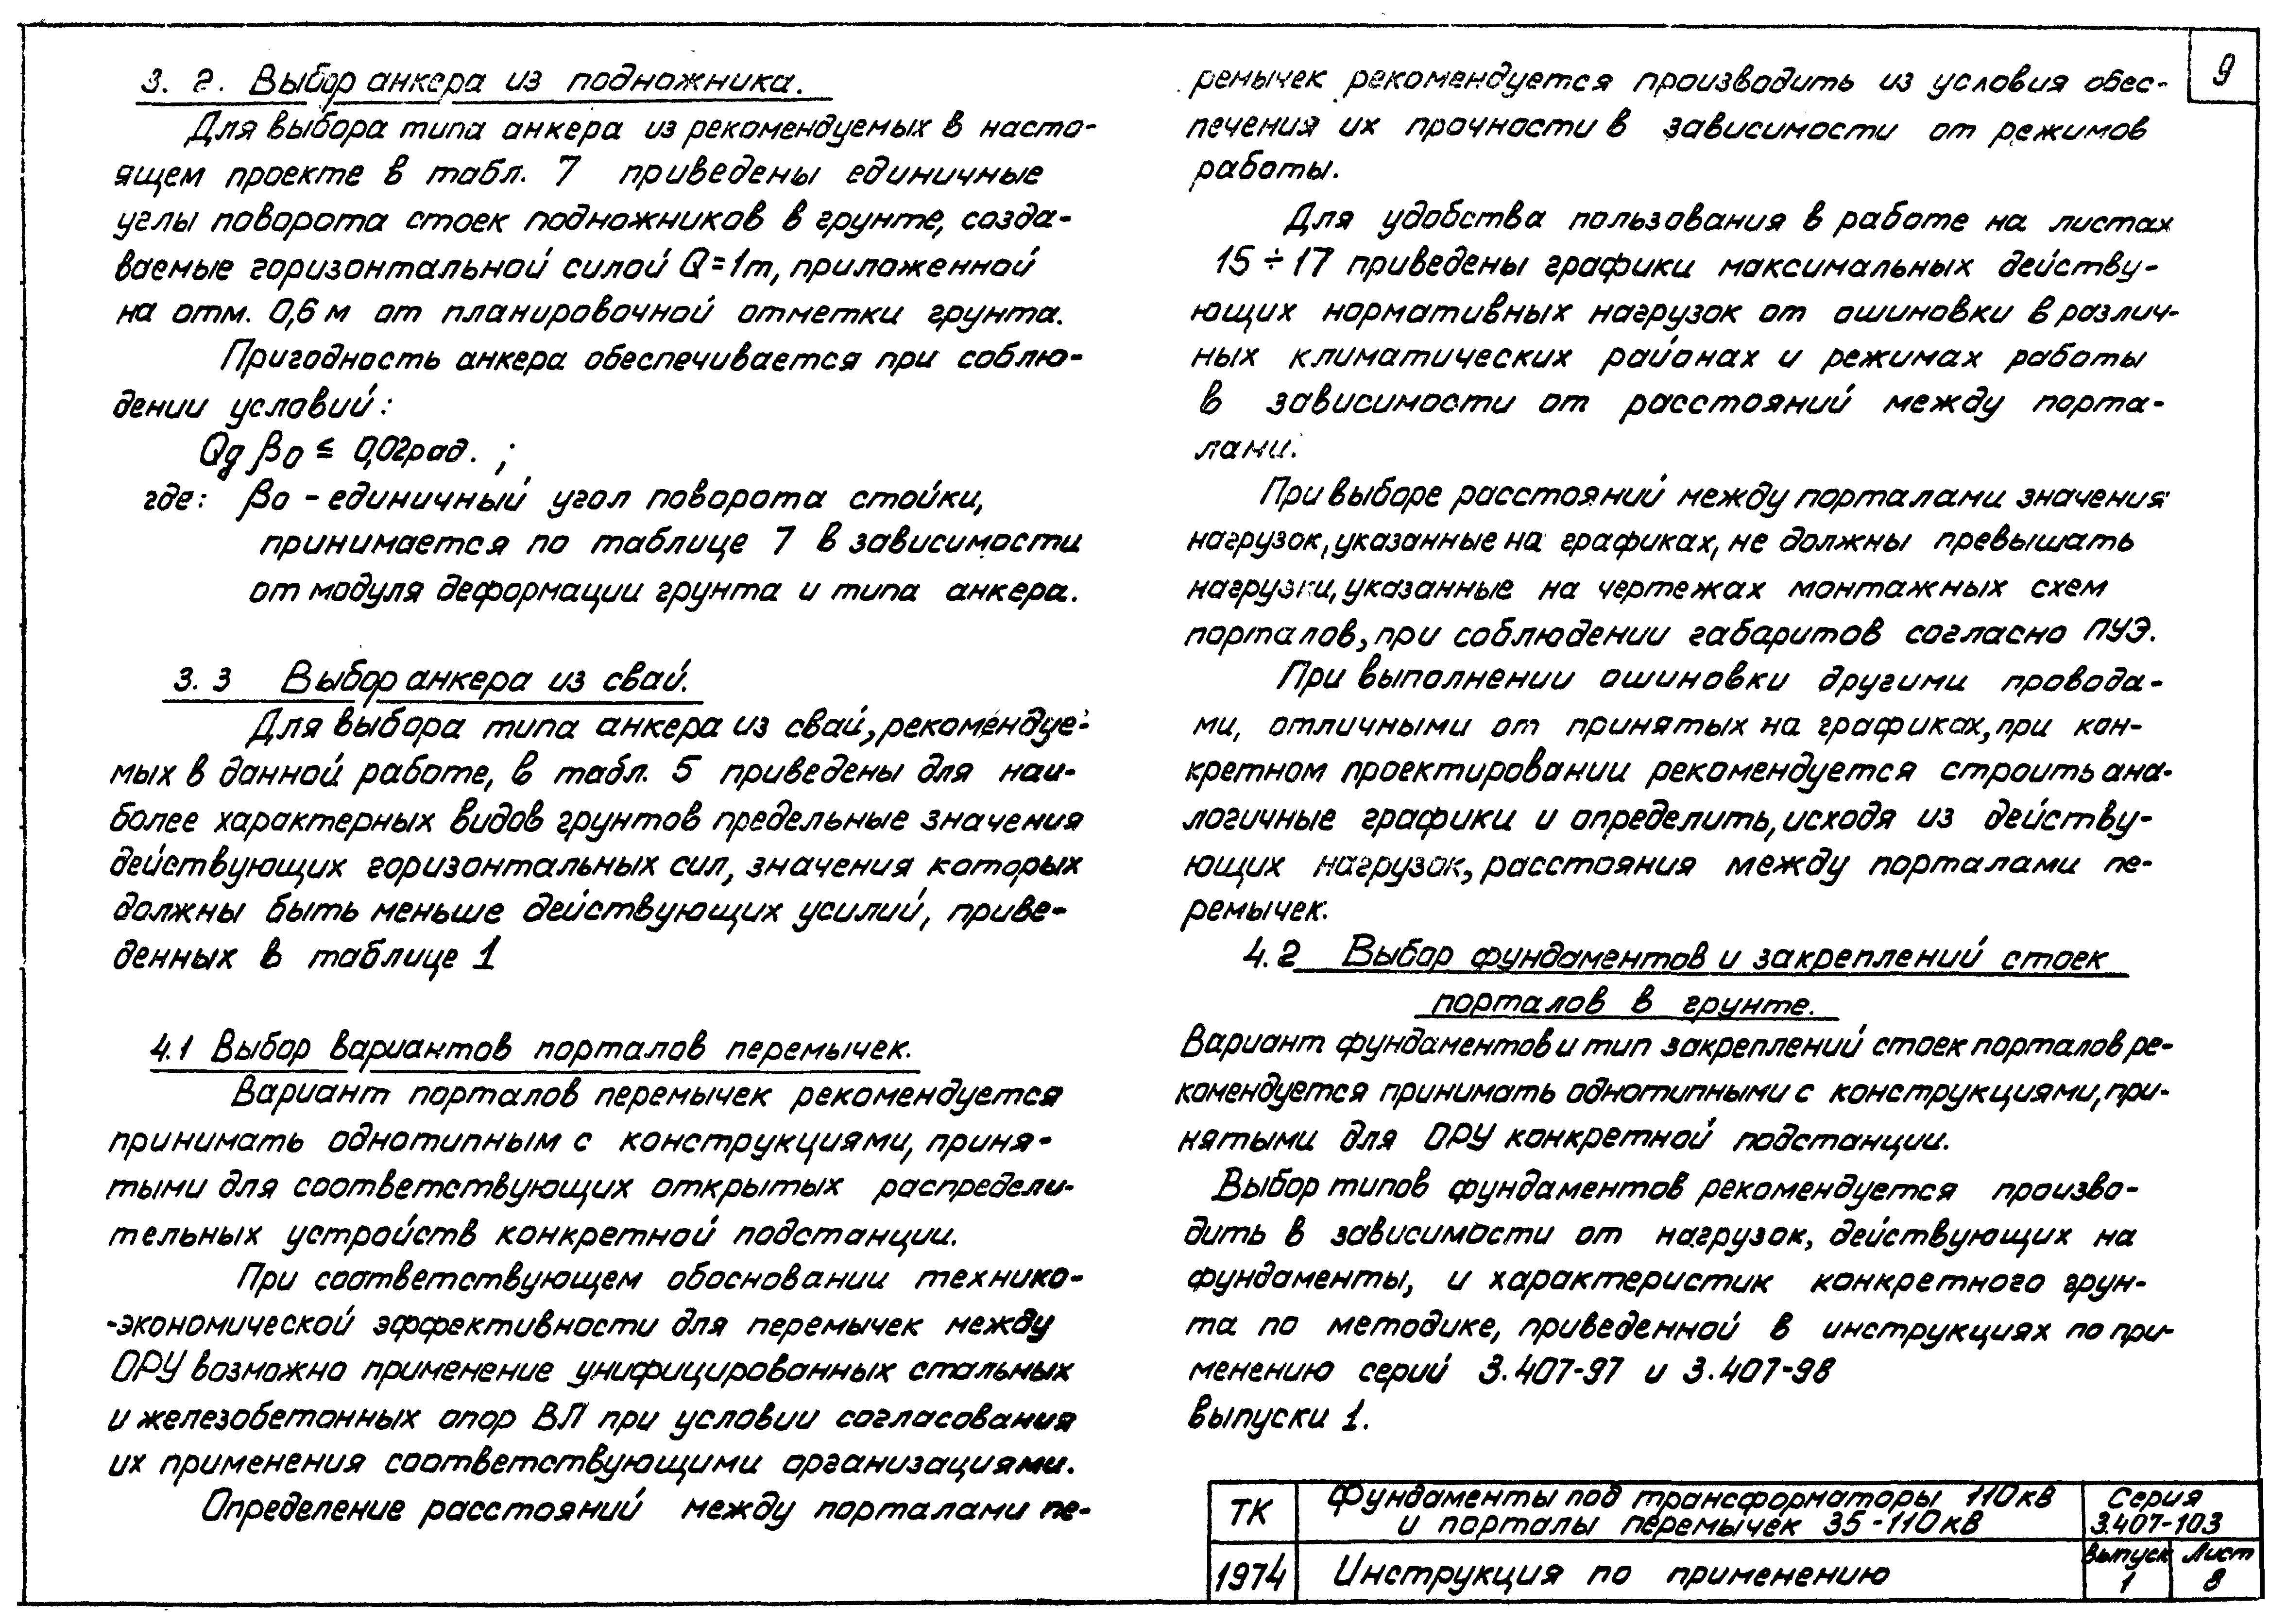 9
3. 2. Выбор анкера из подножника.
Для выбора типа анкера из рекомендуемых в насто-
ящем проекте в табл. 7 приведены единичные
углы поворота стоек подножников в грунте, созда-
ваемые горизонтальной силой Q=1т, приложенной
на отм. 0,6 м от планировочной отметки грунта.
Пригодность анкера обеспечивается при соблю-
дении условий:
Qg β0 ≤ 0,02рад. ;
где: β0 - единичный угол поворота стойки,
принимается по таблице 7 в зависимости
от модуля деформации грунта и типа анкера.
3.3 Выбор анкера из свай.
Для выбора типа анкера из свай, рекомендуе-
мых в данной работе, в табл. 5 приведены для наи-
более характерных видов грунтов предельные значения
действующих горизонтальных сил, значения которых
должны быть меньше действующих усилий, приве-
денных в таблице 1
4.1 Выбор вариантов порталов перемычек.
Вариант порталов перемычек рекомендуется
принимать однотипным с конструкциями, приня-
тыми для соответствующих открытых распредели-
тельных устройств конкретной подстанции.
При соответствующем обосновании технико-
-экономической эффективности для перемычек между
ОРУ возможно применение унифицированных стальных
и железобетонных опор ВЛ при условии согласования
их применения соответствующими организациями.
Определение расстояний между порталами пе-
ремычек рекомендуется производить из условия обес-
печения их прочности в зависимости от режимов
работы.
Для удобства пользования в работе на листах
15 ÷ 17 приведены графики максимальных действу-
ющих нормативных нагрузок от ошиновки в различ-
ных климатических районах и режимах работы
в зависимости от расстояний между порта-
лами.
При выборе расстояний между порталами значения
нагрузок, указанные на графиках, не должны превышать
нагрузки, указанные на чертежах монтажных схем
порталов, при соблюдении габаритов согласно ПУЭ.
При выполнении ошиновки другими провода-
ми, отличными от принятых на графиках, при кон-
кретном проектировании рекомендуется строить ана-
логичные графики и определить, исходя из действу-
ющих нагрузок, расстояния между порталами пе-
ремычек.
4.2 Выбор фундаментов и закреплений стоек
порталов в грунте.
Вариант фундаментов и тип закреплений стоек порталов ре-
комендуется принимать однотипными с конструкциями, при-
нятыми для ОРУ конкретной подстанции.
Выбор типов фундаментов рекомендуется произво-
дить в зависимости от нагрузок, действующих на
фундаменты, и характеристик конкретного грун-
та по методике, приведенной в инструкциях по при-
менению серий 3.407-97 и 3.407-98
выпуски 1.
ТК
Фундаменты под трансформаторы 110кВ
и порталы перемычек 35-110кВ
Серия
3.407-103
1974
Инструкция по применению
Выпуск
1
Лист
8